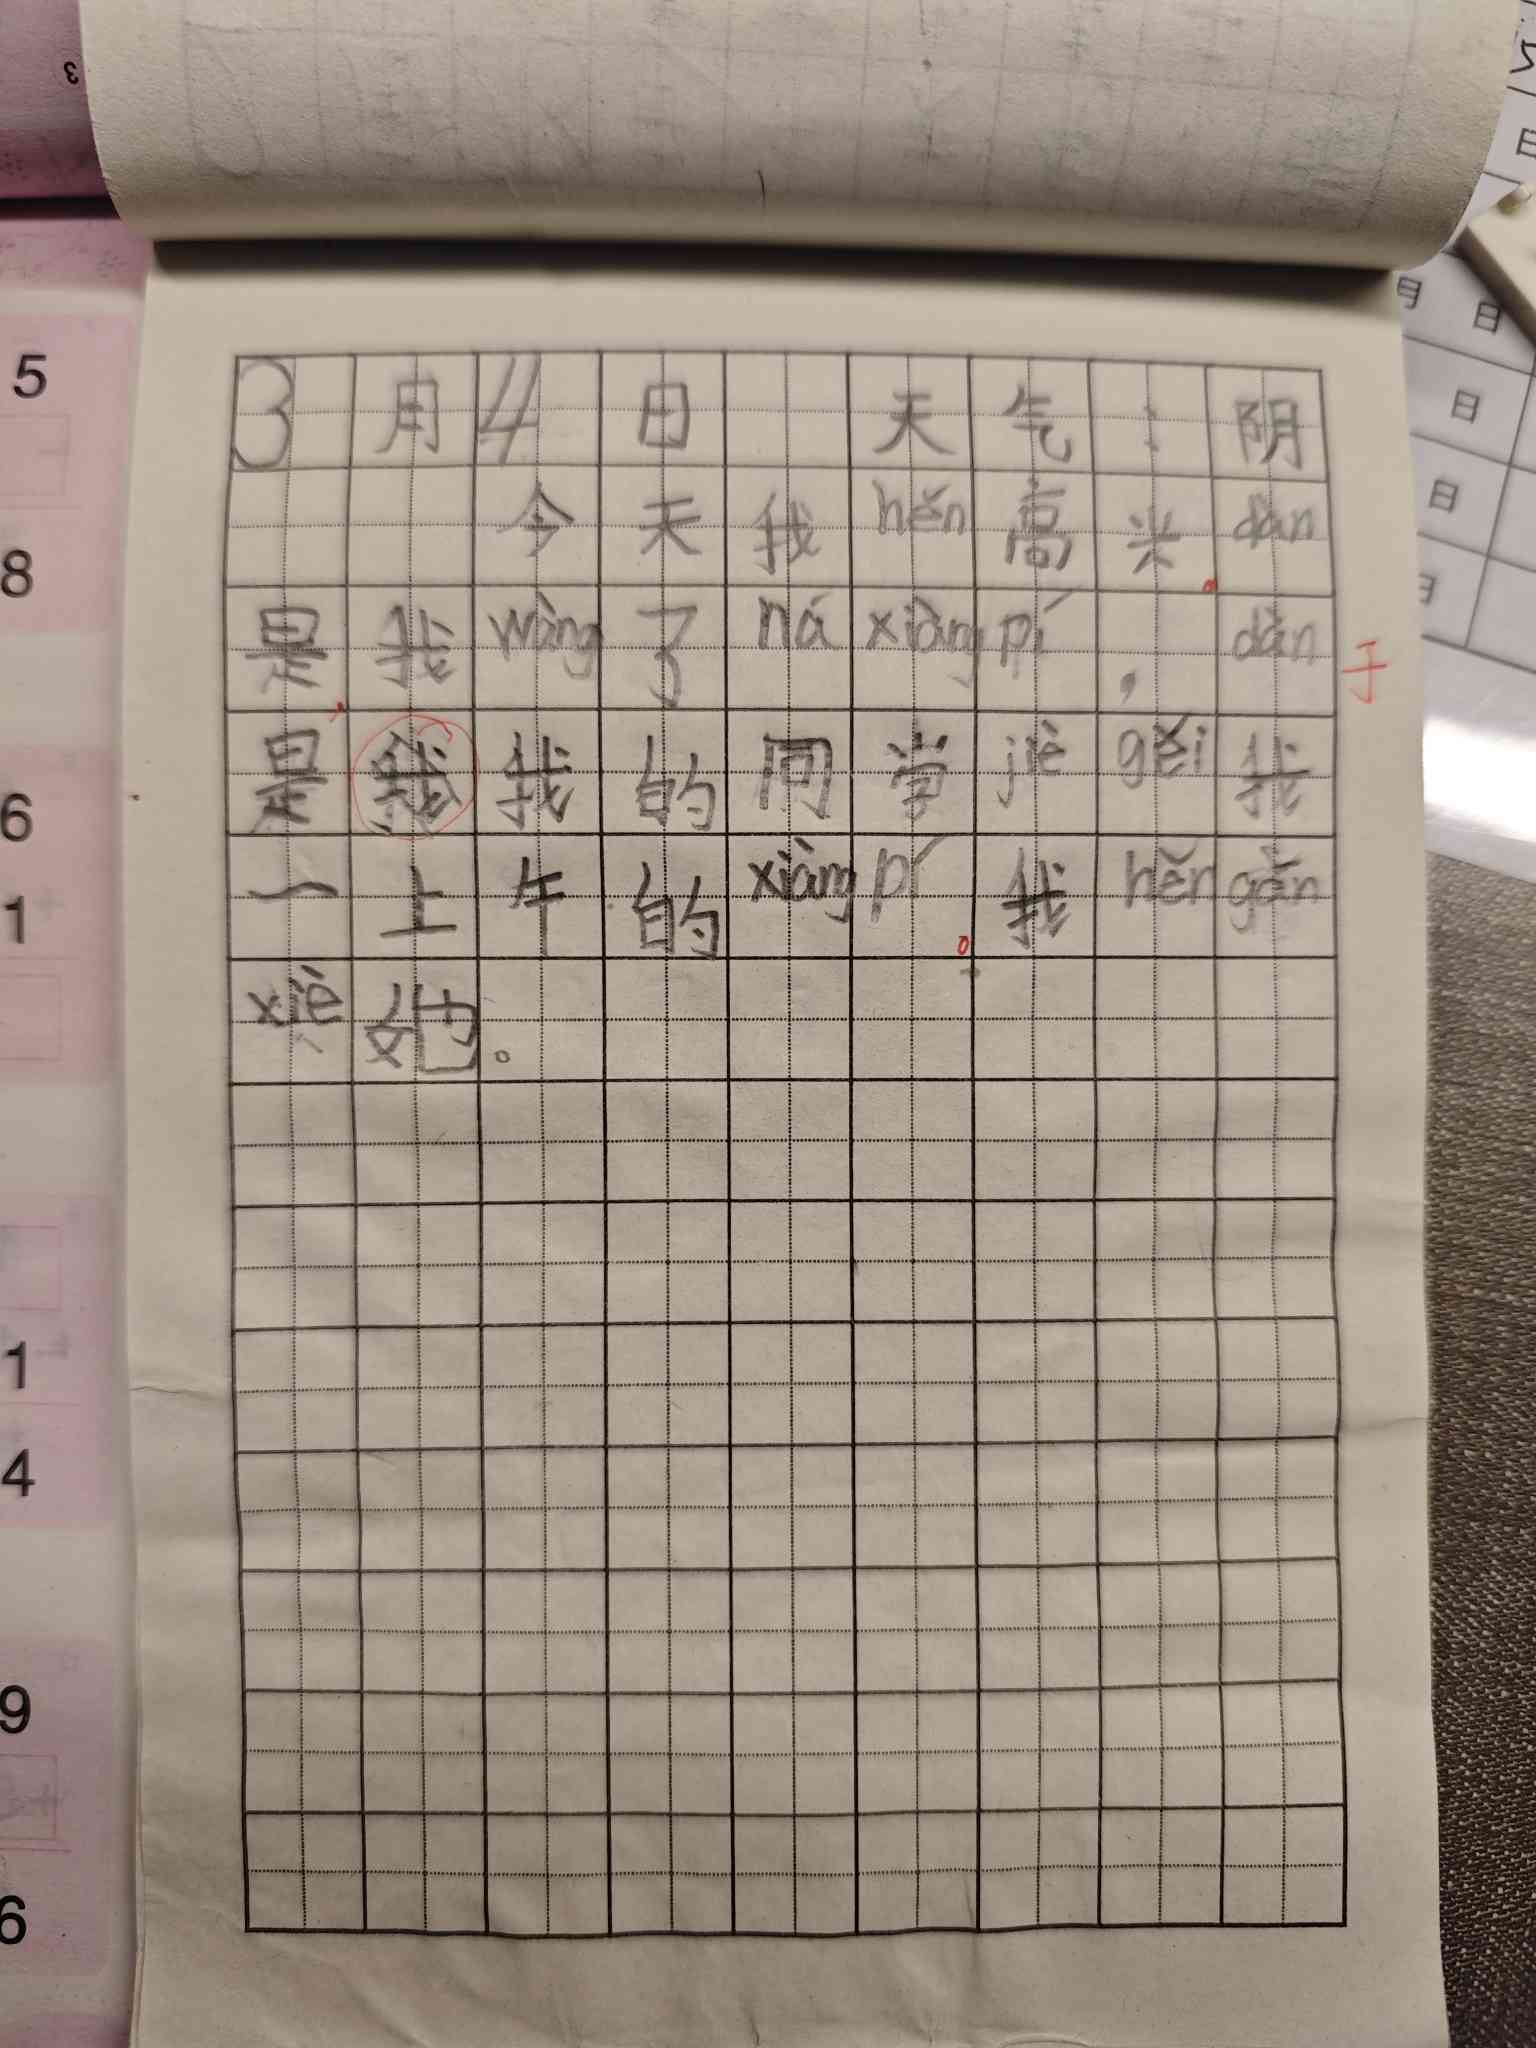 3月4日 天气：阴
今天我hěn高兴。dàn
是我wàng了ná xiàng pí，dàn
于
是，我我的同学jiè gěi我
一上午的xiàng pí。我hěn gǎn
xiè她。
5
8
6
1
1
4
9
6
3
月 日
日
日
日
日